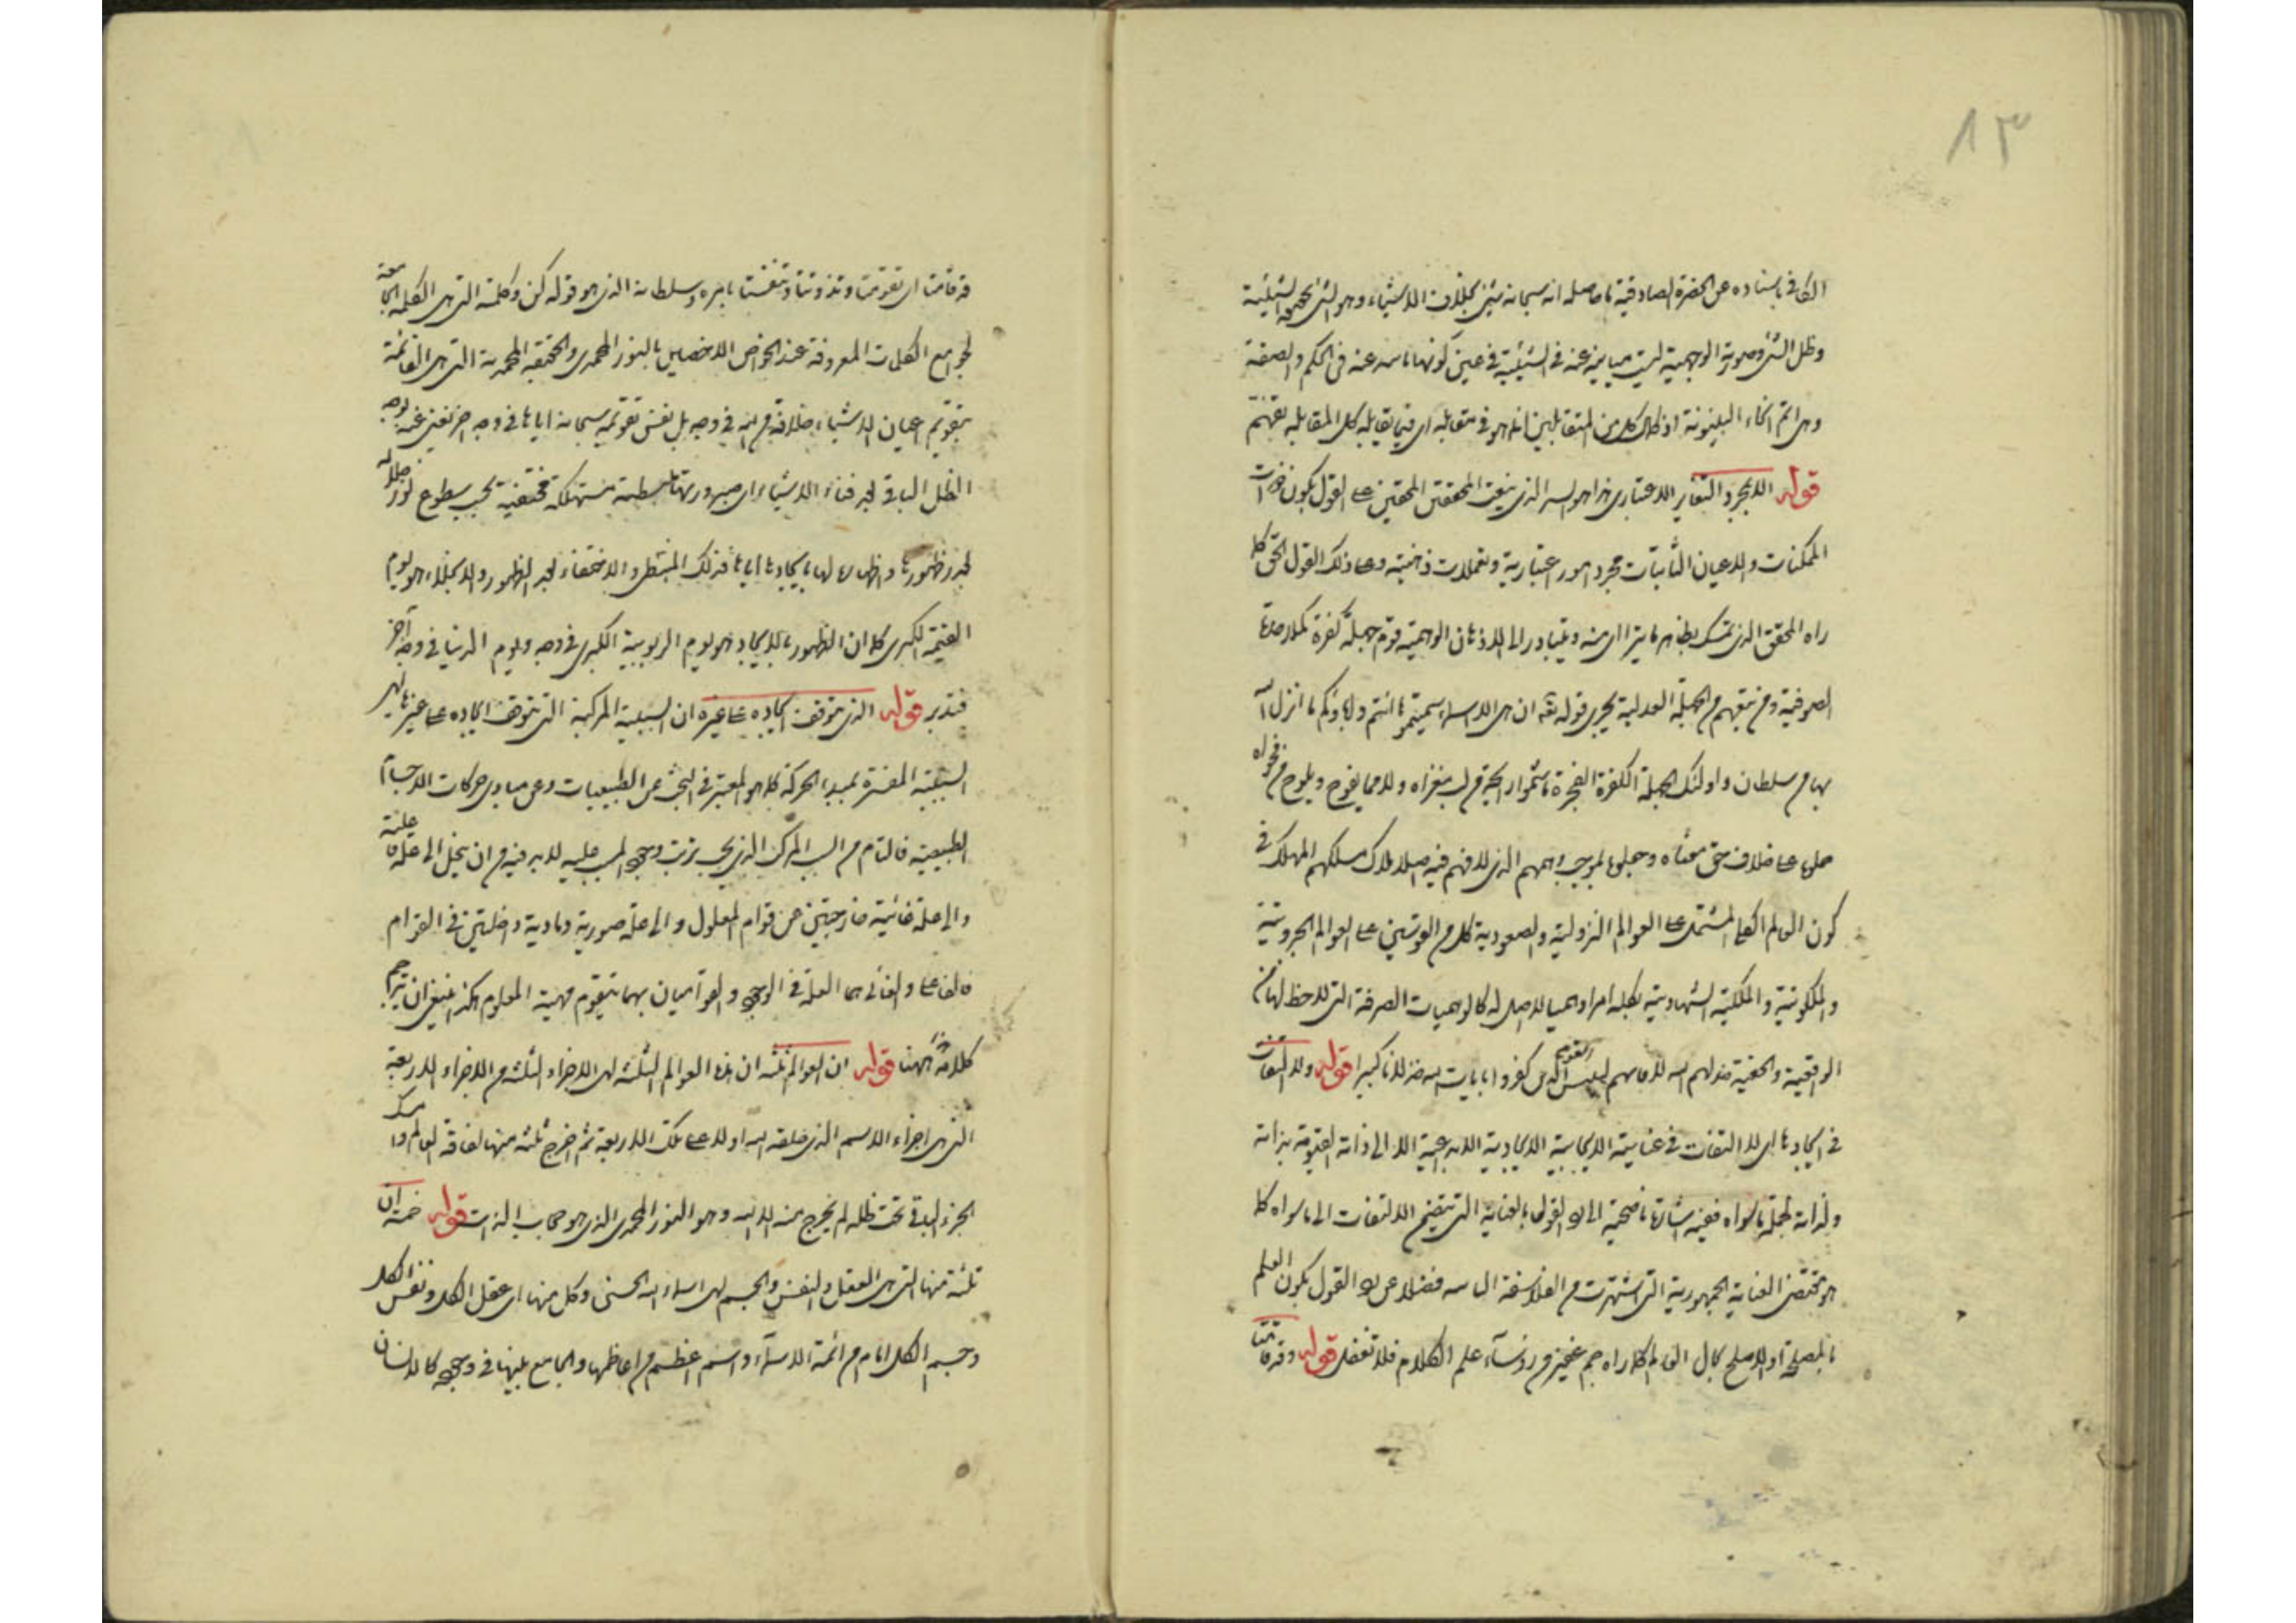 ١٣
الكافي باسناده عن الحضرة الصادقية ما حاصله انه سبحانه شيء بخلاف الاشياء وهو الشيء بحقيقة الشيئية
وظل الشيء وصورته الوهمية ليست مباينة عنه في الشيئية في عين كونها باينة عنه في الحكم والصفة
وهي اتم انحاء البينونة اذ كمال كل من المتقابلين انما هو في مقابله اي فيما يقابله كل المقابلة تفهم
قوله الا بمجرد التغاير الاعتباري هذا هو السر الذي يبعث المحققين المحقين على القول بكون ذوات
الممكنات والاعيان الثابتات مجرد امور اعتبارية وتعملات ذهنية وعلى ذلك القول الحق كما
راه المحقق الذي تمسك بظاهر ما يتراءى منه ويتبادر الى الاذهان الوهمية قوم جهلة كفرة كملاحدة
الصوفية ومن تبعهم من الجهلة العدلية بمجرى قوله تعه ان هي الا اسماء سميتموها انتم وآباؤكم ما انزل الله
بها من سلطان واولئك الجهلة الكفرة الفجرة ما شموا رائحة من لب مغزاه ولا مما يفوح ويلوح من فحواه
حملوها على خلاف حق معناه وجعلوها بموجب وهمهم الذي لا فهم فيه اصلا ملاك مسلكهم المهلك في
كون العالم الكلي المشتمل على العوالم النزولية والصعودية كل من القوسين على العوالم الجبروتية
والملكوتية والملكية الشهادية بكله امرا وهميا لا اصل له كالوهميات الصرفة التي لا حظ لها من
الواقعية والحقية خذلهم الله لايمانهم لبئس القوم الذين كفروا بايات الله خذلانا كبيرا قوله ولا التفات
في ايجادها اي لا التفات في عنايته الايجابية الايجادية الابداعية الا الى ذاته القيومة بذاته
ولذاته لجملة ما سواه ففيه اشارة ناصحية الى القول بالعناية التي تقتضي الالتفات الى ما سواه كما
هو مقتضى العناية الجمهورية التي اشتهرت من الفلاسفة فضلا عن القول بكون العلم
بالمصلحة او الاصلح بحال العالم كما راه جم غفير من رؤساء علم الكلام فلا تغفل قوله وقد قامتا
قد قامتا اي تقومتا وتذوتتا وتحققتا بامره وسلطانه الذي هو قوله كن وكلمته التي هي الكلمة الجامعة
لجوامع الكلمات المعروفة عند الخواص الاخصين بالنور المحمدي والحقيقة المحمدية التي هي القائمة
بتقويم اعيان الاشياء خلافة من الله في وجه بل نفس تقويمه سبحانه اياها في وجه اخر نعني عنه بوجه
الظل الباقي بعد فناء الاشياء اي صيرورتها منطمسة مستهلكة مختفية بحسب سطوع نور جلاله
بعد ظهورها واظهاره لها بايجادها اياها فذلك والاختفاء بعد الظهور والانجلاء هو يوم
القيمة الكبرى كما ان الظهور بالايجاد هو يوم الربوبية الكبرى في وجه ويوم الدنيا في وجه آخر
فتدبر قوله الذي يتوقف ايجاده على غيره ان السببية المركبة التي يتوقف ايجاده على غيرها هي
السببية المفسرة بمبدء الحركة كما هو المعتبر في البحث عن الطبيعيات وعن مبادي حركات الاجسام
الطبيعية فالتام من السبب المركب الذي يجب ترتب وجود المسبب عليه لا بد فيه من ان ينحل الى علة فاعلية
والى علة غائية خارجتين عن قوام المعلول والى علة صورية ومادية داخلتين في القوام
فالفاعل والغائي هما العلة في الوجود والقواميان بهما يتقوم مهية المعلوم هكذا ينبغي ان يترجم
كلامه ههنا قوله ان العوالم ثلثة ان هذه العوالم الثلثة هي الاجزاء الثلثة من الاجزاء الاربعة
التي هي اجزاء الاسم الذي خلقه الله اولا على تلك الاربعة ثم اخرج ثلثة منها لفاقة العالم وامسك
الجزء الباقي تحت ظله لم يخرج منه الا اليه وهو النور المحمدي الذي هو حجاب الذات قوله خمسة ان
ثلثة منها التي هي العقل والنفس والجسم هي اسماء الله الحسنى وكل منها اي عقل الكل ونفس الكل
وجسم الكل امام من ائمة الاسماء واسم اعظم من اعاظمها والجامع بينها في وجوده كالانسان